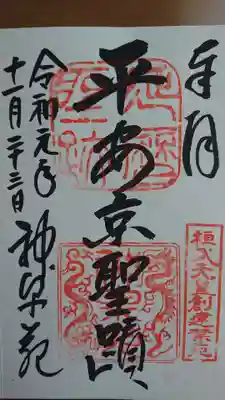 奉拝
平安京聖蹟
令和元年
十一月二十三日
神泉苑
桓武天皇創建禁苑